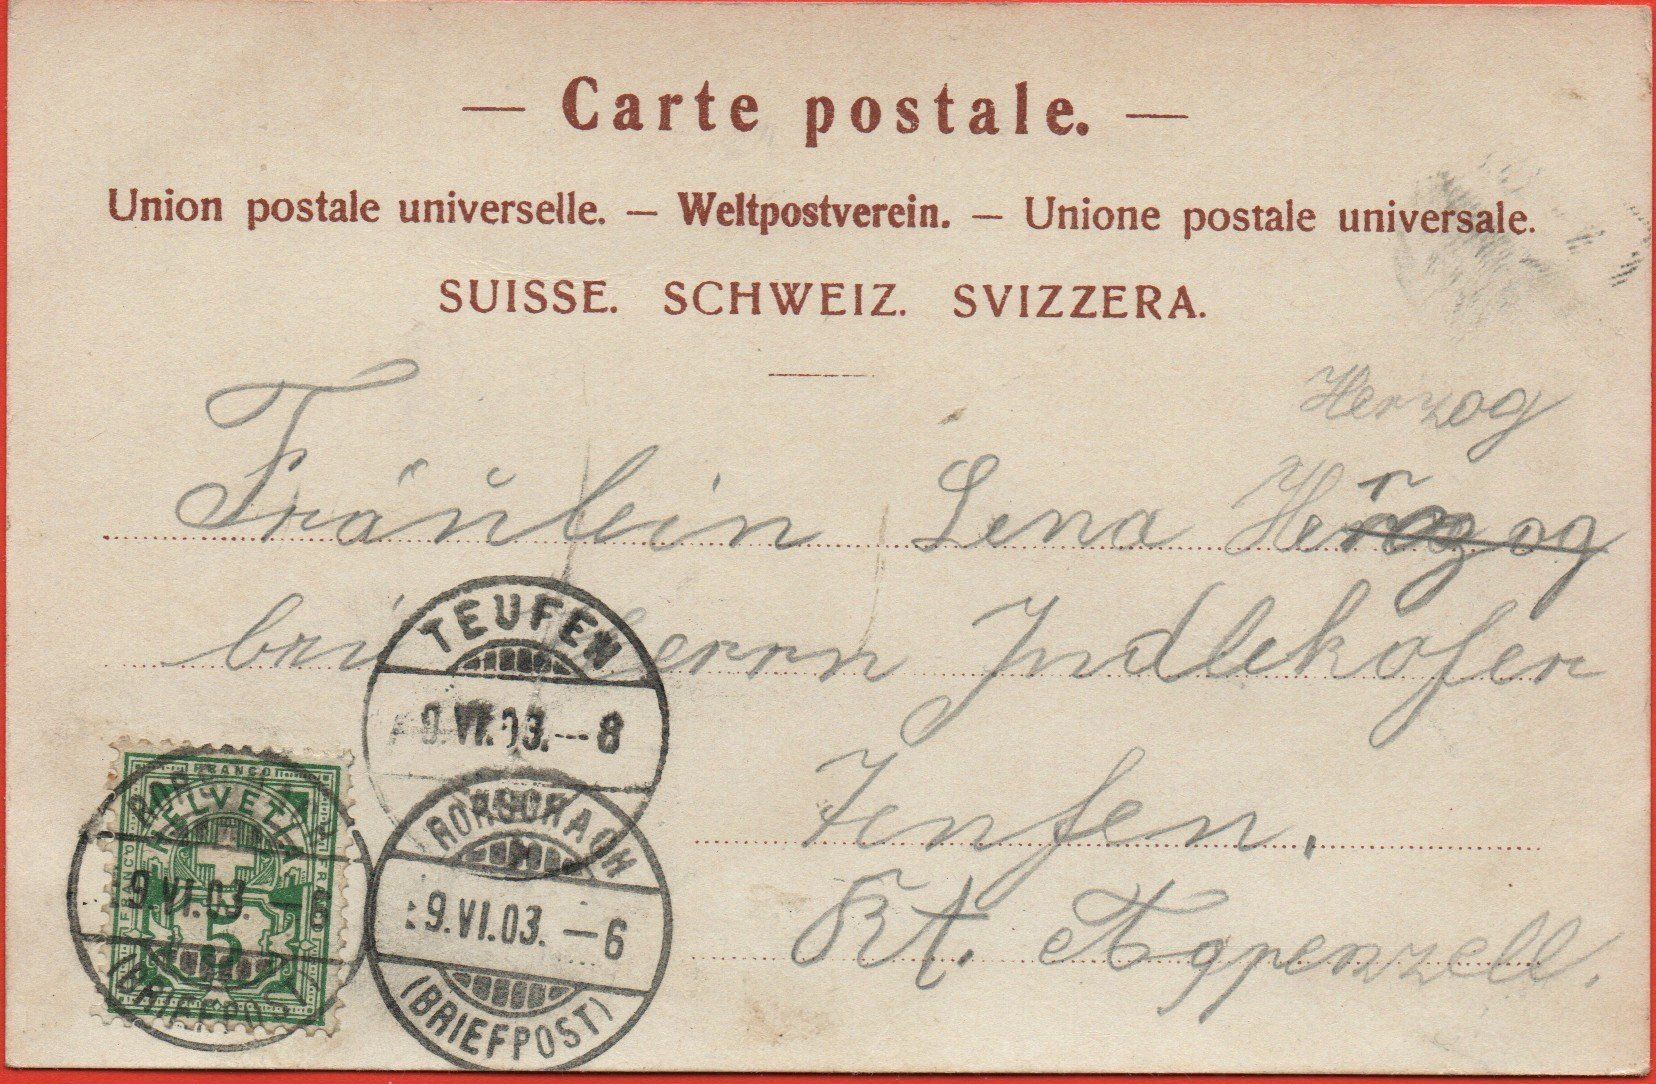 — Carte postale. —
Union postale universelle. — Weltpostverein. — Unione postale universale.
SUISSE. SCHWEIZ. SVIZZERA.
Herzog
Fräulein Lena Herzog
bei Herrn Indlekofer
Teufen,
Kt. Appenzell.
TEUFEN
9.VI.03.--8
RORSCHACH
9.VI.03.—6
(BRIEFPOST)
FRANCO
HELVETIA
FRANCO
FRANCO
9.VI.03
5
(BRIEFPOST)